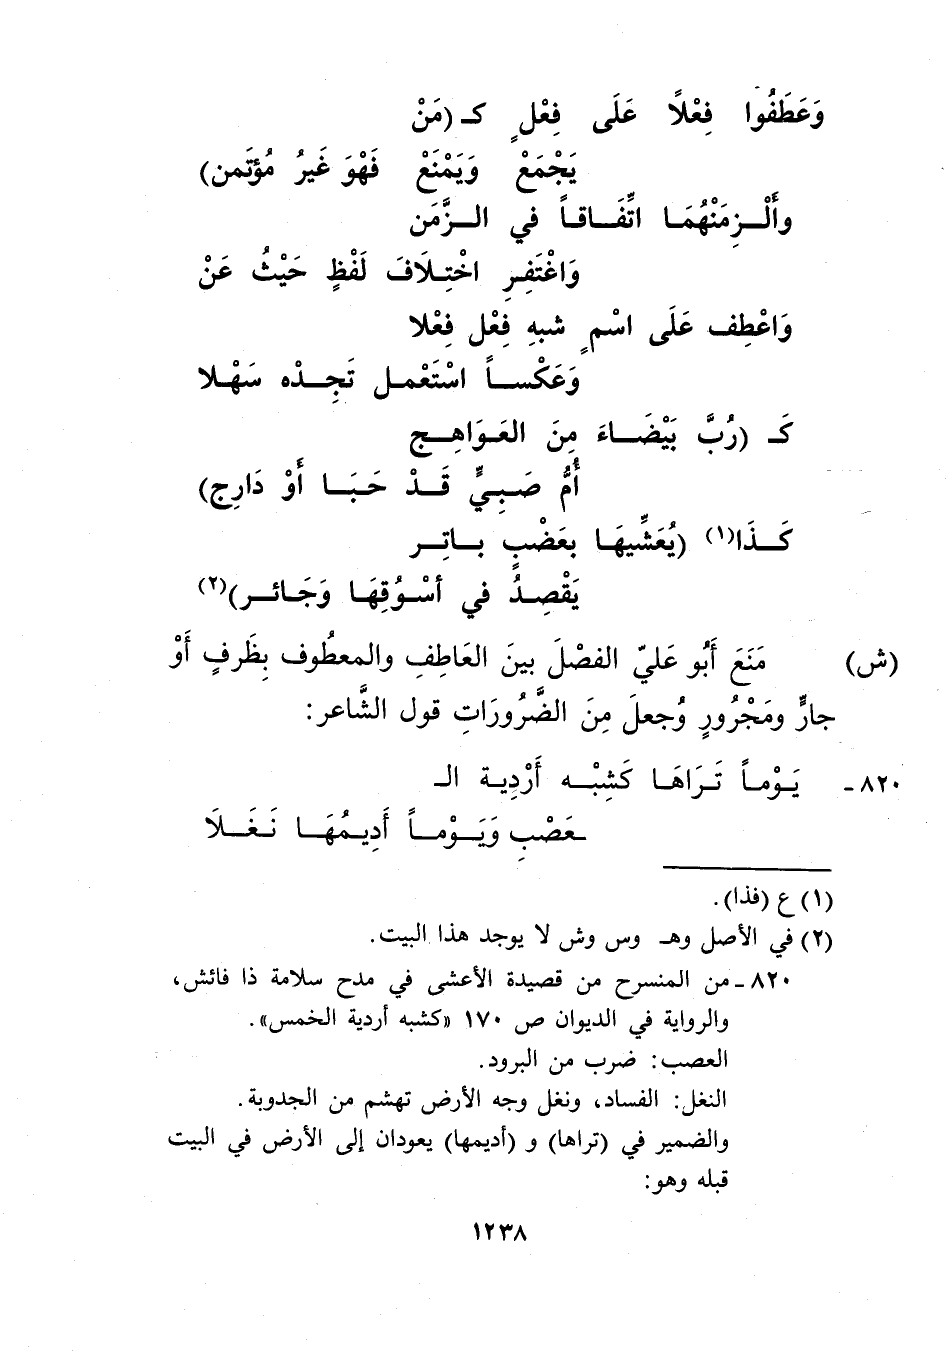 وَعَطَفُوا فِعْلاً عَلَى فِعْلٍ كـ (مَنْ
يَجْمَعْ وَيَمْنَعْ فَهْوَ غَيرُ مُؤتَمن)
وأَلْـزِمَنْهُمَـا اتِّفَـاقـاً في الـزَّمَن
وَاغْتَفِـرِ اخْتِـلَافَ لَفْظٍ حَيْثُ عَنْ
وَاعْطِف عَلَى اسْمٍ شبهِ فِعْل فِعْلا
وَعَكْسـاً اسْتَعْمـل تَجِـدْه سَهْـلا
كَـ (رُبَّ بَيْضَـاءَ مِنَ العَـوَاهِـج
أُمُّ صَـبِـيٍّ قَـدْ حَـبَـا أَوْ دَارِج)
كَـذَا(١) (يُعَشِّيهَـا بعَضْبٍ بـاتِـر
يَقْصِـدُ في أسْـوُقِهَـا وَجَـائـر)(٢)
(ش) مَنَعَ أَبُو عَليّ الفصْلَ بينَ العَاطِفِ والمعطُوف بِظَرفٍ أَوْ
جارٍّ ومَجْرُورٍ وُجعلَ مِنَ الضَّرُورَاتِ قول الشَّاعر:
٨٢٠ - يَـوْمـاً تَـرَاهَـا كَشِبْـه أَرْدِيـة الـ
ـعَصْبِ وَيَـوْمـاً أَدِيـمُهَـا نَـغَـلَا
(١) ع (فذا).
(٢) في الأصل وهـ وس وش لا يوجد هذا البيت.
٨٢٠ - من المنسرح من قصيدة الأعشى في مدح سلامة ذا فائش،
والرواية في الديوان ص ١٧٠ «كشبه أردية الخمس».
العصب: ضرب من البرود.
النغل: الفساد، ونغل وجه الأرض تهشم من الجدوبة.
والضمير في (تراها) و (أديمها) يعودان إلى الأرض في البيت
قبله وهو:
١٢٣٨